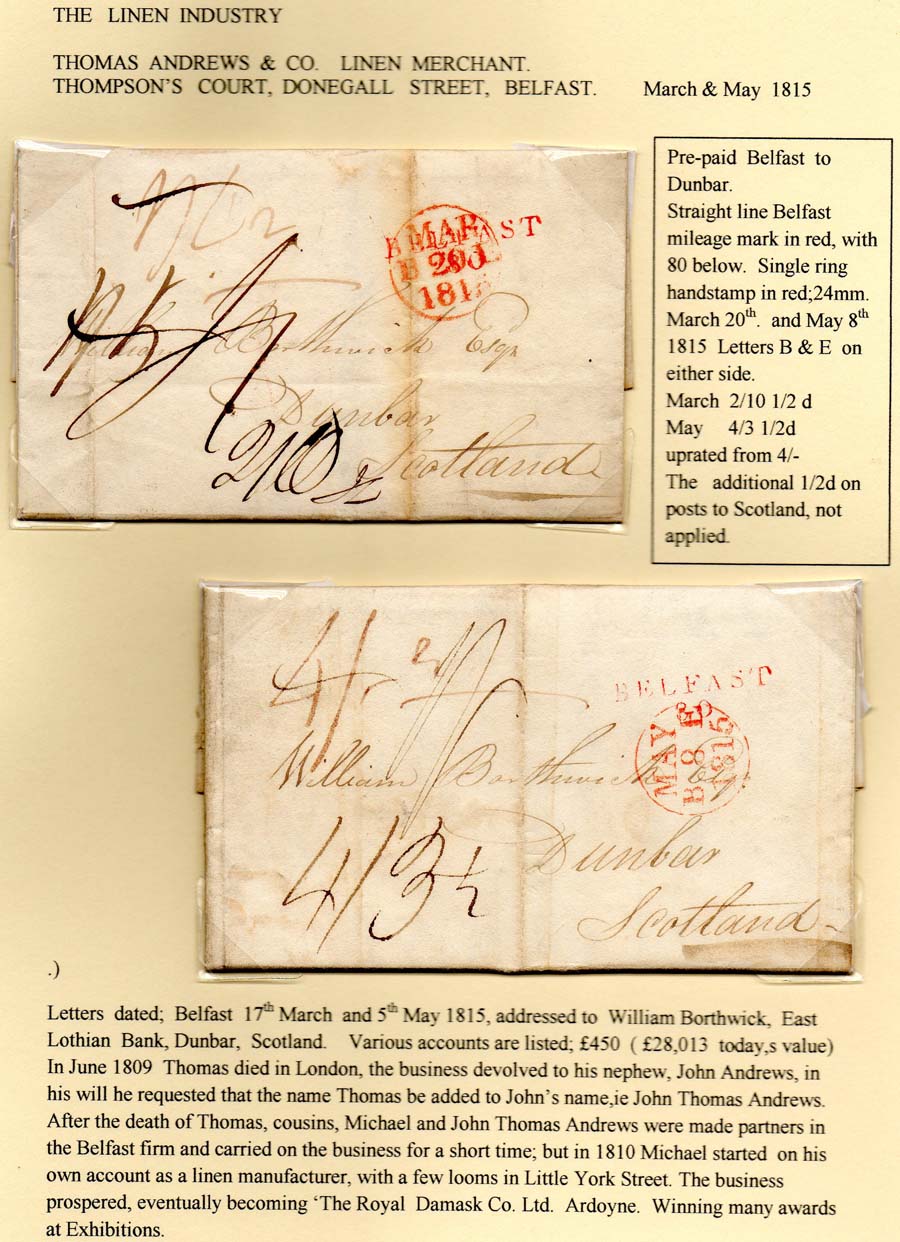 THE LINEN INDUSTRY
THOMAS ANDREWS & CO. LINEN MERCHANT.
THOMPSON'S COURT, DONEGALL STREET, BELFAST. March & May 1815
Pre-paid Belfast to
Dunbar.
Straight line Belfast
mileage mark in red, with
80 below. Single ring
handstamp in red;24mm.
March 20th. and May 8th
1815 Letters B & E on
either side.
March 2/10 1/2 d
May 4/3 1/2d
uprated from 4/-
The additional 1/2d on
posts to Scotland, not
applied.
BELFAST
MAR
B 20
181
William Borthwick Esqr
Dunbar
2/10 ½ Scotland
4/
BELFAST
80
MAY
B 8 E
1815
William Borthwick Esqr
Dunbar
4/3½
Scotland
.)
Letters dated; Belfast 17th March and 5th May 1815, addressed to William Borthwick, East
Lothian Bank, Dunbar, Scotland. Various accounts are listed; £450 ( £28,013 today,s value)
In June 1809 Thomas died in London, the business devolved to his nephew, John Andrews, in
his will he requested that the name Thomas be added to John's name,ie John Thomas Andrews.
After the death of Thomas, cousins, Michael and John Thomas Andrews were made partners in
the Belfast firm and carried on the business for a short time; but in 1810 Michael started on his
own account as a linen manufacturer, with a few looms in Little York Street. The business
prospered, eventually becoming 'The Royal Damask Co. Ltd. Ardoyne. Winning many awards
at Exhibitions.